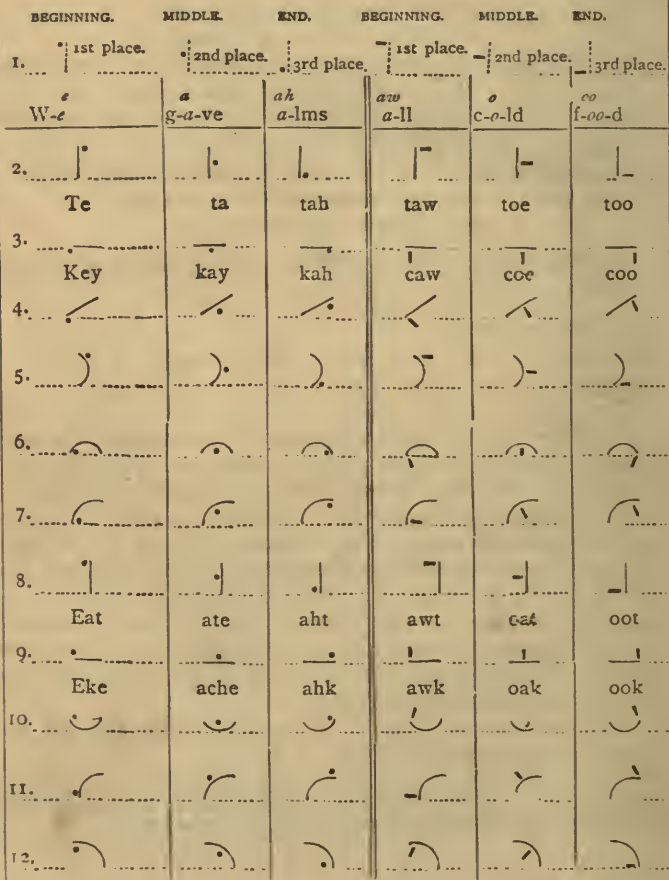 BEGINNING. MIDDLE. END. BEGINNING. MIDDLE. END.
1. 1st place. 2nd place. 3rd place. 1st place. 2nd place. 3rd place.
e a ah aw o oo
W-e g-a-ve a-lms a-ll c-o-ld f-oo-d
2.
Te ta tah taw toe too
3.
Key kay kah caw coe coo
4.
5.
6.
7.
8.
Eat ate aht awt oat oot
9.
Eke ache ahk awk oak ook
10.
11.
12.